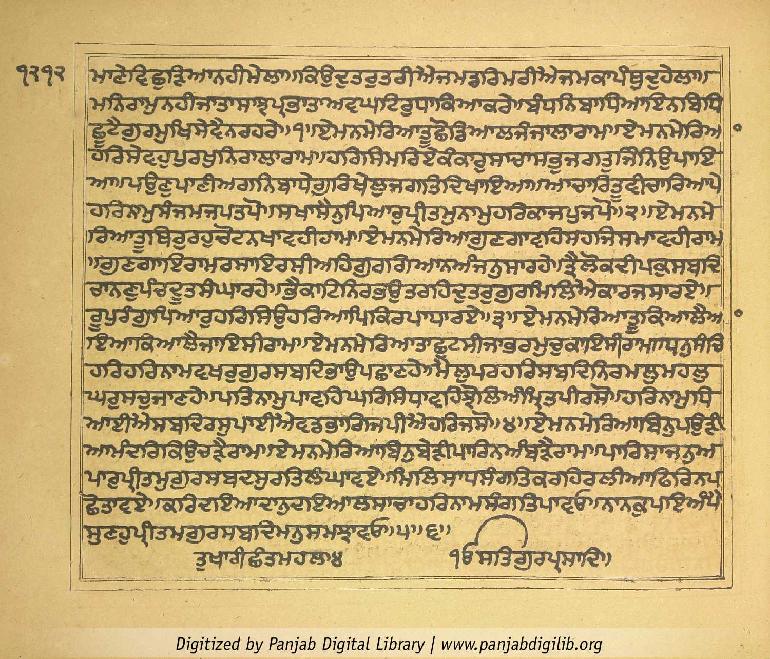 ੧੨੧੨
ਮਾਣੇਵਿਛੁੜਿਆਨਹੀਮੇਲਾ॥ਕਿਉਦੁਤਰੁਤਰੀਐਜਮਡਰਿਮਰੀਐਜਮਕਾਪੰਥੁਦੁਹੇਲਾ॥
ਮਨਿਰਾਮੁਨਹੀਜਾਤਾਸਾਝਪ੍ਰਭਾਤਾਅਵਘਟਿਰੁਧਾਕਿਆਕਰੇ॥ਬੰਧਨਿਬਾਧਿਆਇਨਬਿਧਿ
ਛੂਟੈਗੁਰਮੁਖਿਸੇਵੈਨਰਹਰੇ॥੧॥ਏਮਨਮੇਰਿਆਤੂਛੋਡਿਆਲਜੰਜਾਲਾਰਾਮ॥ਏਮਨਮੇਰਿਆ
ਹਰਿਸੇਵਹੁਪੁਰਖੁਨਿਰਾਲਾਰਾਮ॥ਹਰਿਸਿਮਰਿਏਕੰਕਾਰੁਸਾਚਾਸਭੁਜਗਤੁਜਿੰਨਿਉਪਾਇ
ਆ॥ਪਉਣੁਪਾਣੀਅਗਨਿਬਾਧੇਗੁਰਿਖੇਲੁਜਗਤਿਦਿਖਾਇਆ॥ਆਚਾਰਿਤੂਵੀਚਾਰਿਆਪੇ
ਹਰਿਨਾਮੁਸੰਜਮਜਪਤਪੋ॥ਸਖਾਸੈਨੁਪਿਆਰੁਪ੍ਰੀਤਮੁਨਾਮੁਹਰਿਕਾਜਪੁਜਪੋ॥੨॥ਏਮਨਮੇ
ਰਿਆਤੂਥਿਰੁਰਹੁਚੋਟਨਖਾਵਹੀਰਾਮ॥ਏਮਨਮੇਰਿਆਗੁਣਗਾਵਹਿਸਹਜਿਸਮਾਵਹੀਰਾਮ
॥ਗੁਣਗਾਇਰਾਮਰਸਾਇਰਸੀਅਹਿਗੁਰਗਿਆਨਅੰਜਨੁਸਾਰਹੇ॥ਤ੍ਰੈਲੋਕਦੀਪਕੁਸਬਦਿ
ਚਾਨਣੁਪੰਚਦੂਤਸੰਘਾਰਹੇ॥ਭੈਕਾਟਿਨਿਰਭਉਤਰਹਿਦੁਤਰੁਗੁਰਿਮਿਲਿਐਕਾਰਜਸਾਰਏ॥
ਰੂਪੁਰੰਗੁਪਿਆਰੁਹਰਿਸਿਉਹਰਿਆਪਿਕਿਰਪਾਧਾਰਏ॥੩॥ਏਮਨਮੇਰਿਆਤੂਕਿਆਲੈਅ
ਾਇਆਕਿਆਲੈਜਾਇਸੀਰਾਮ॥ਏਮਨਮੇਰਿਆਤਾਛੁਟਸੀਜਾਭਰਮੁਚੁਕਾਇਸੀਰਾਮ॥ਧਨੁਸੰਚਿ
ਹਰਿਹਰਿਨਾਮਵਖਰੁਗੁਰਸਬਦਿਭਾਉਪਛਾਣਹੇ॥ਮੈਲੁਪਰਹਰਿਸਬਦਿਨਿਰਮਲੁਮਹਲੁ
ਘਰੁਸਚੁਜਾਣਹੇ॥ਪਤਿਨਾਮੁਪਾਵਹਿਘਰਿਸਿਧਾਵਹਿਝੋਲਿਅੰਮ੍ਰਿਤਪੀਰਸੋ॥ਹਰਿਨਾਮੁਧਿ
ਆਈਐਸਬਦਿਰਸੁਪਾਈਐਵਡਭਾਗਿਜਪੀਐਹਰਿਜਸੋ॥੪॥ਏਮਨਮੇਰਿਆਬਿਨੁਪਉੜੀ
ਆਮੰਦਰਿਕਿਉਚੜੈਰਾਮ॥ਏਮਨਮੇਰਿਆਬਿਨੁਬੇੜੀਪਾਰਿਨਅੰਬੜੈਰਾਮ॥ਪਾਰਿਸਾਜਨੁਅ
ਪਾਰੁਪ੍ਰੀਤਮੁਗੁਰਸਬਦਸੁਰਤਿਲੰਘਾਵਏ॥ਮਿਲਿਸਾਧਸੰਗਤਿਕਰਹਿਰਲੀਆਫਿਰਿਨਪ
ਛੋਤਾਵਏ॥ਕਰਿਦਇਆਦਾਨੁਦਇਆਲਸਾਚਾਹਰਿਨਾਮਸੰਗਤਿਪਾਵਓ॥ਨਾਨਕੁਪਇਅੰਪੈ
ਸੁਣਹੁਪ੍ਰੀਤਮਗੁਰਸਬਦਿਮਨੁਸਮਝਾਵਓ॥੫॥੬॥
ਤੁਖਾਰੀਛੰਤਮਹਲਾ੪ ੴਸਤਿਗੁਰਪ੍ਰਸਾਦਿ॥
Digitized by Panjab Digital Library | www.panjabdigilib.org